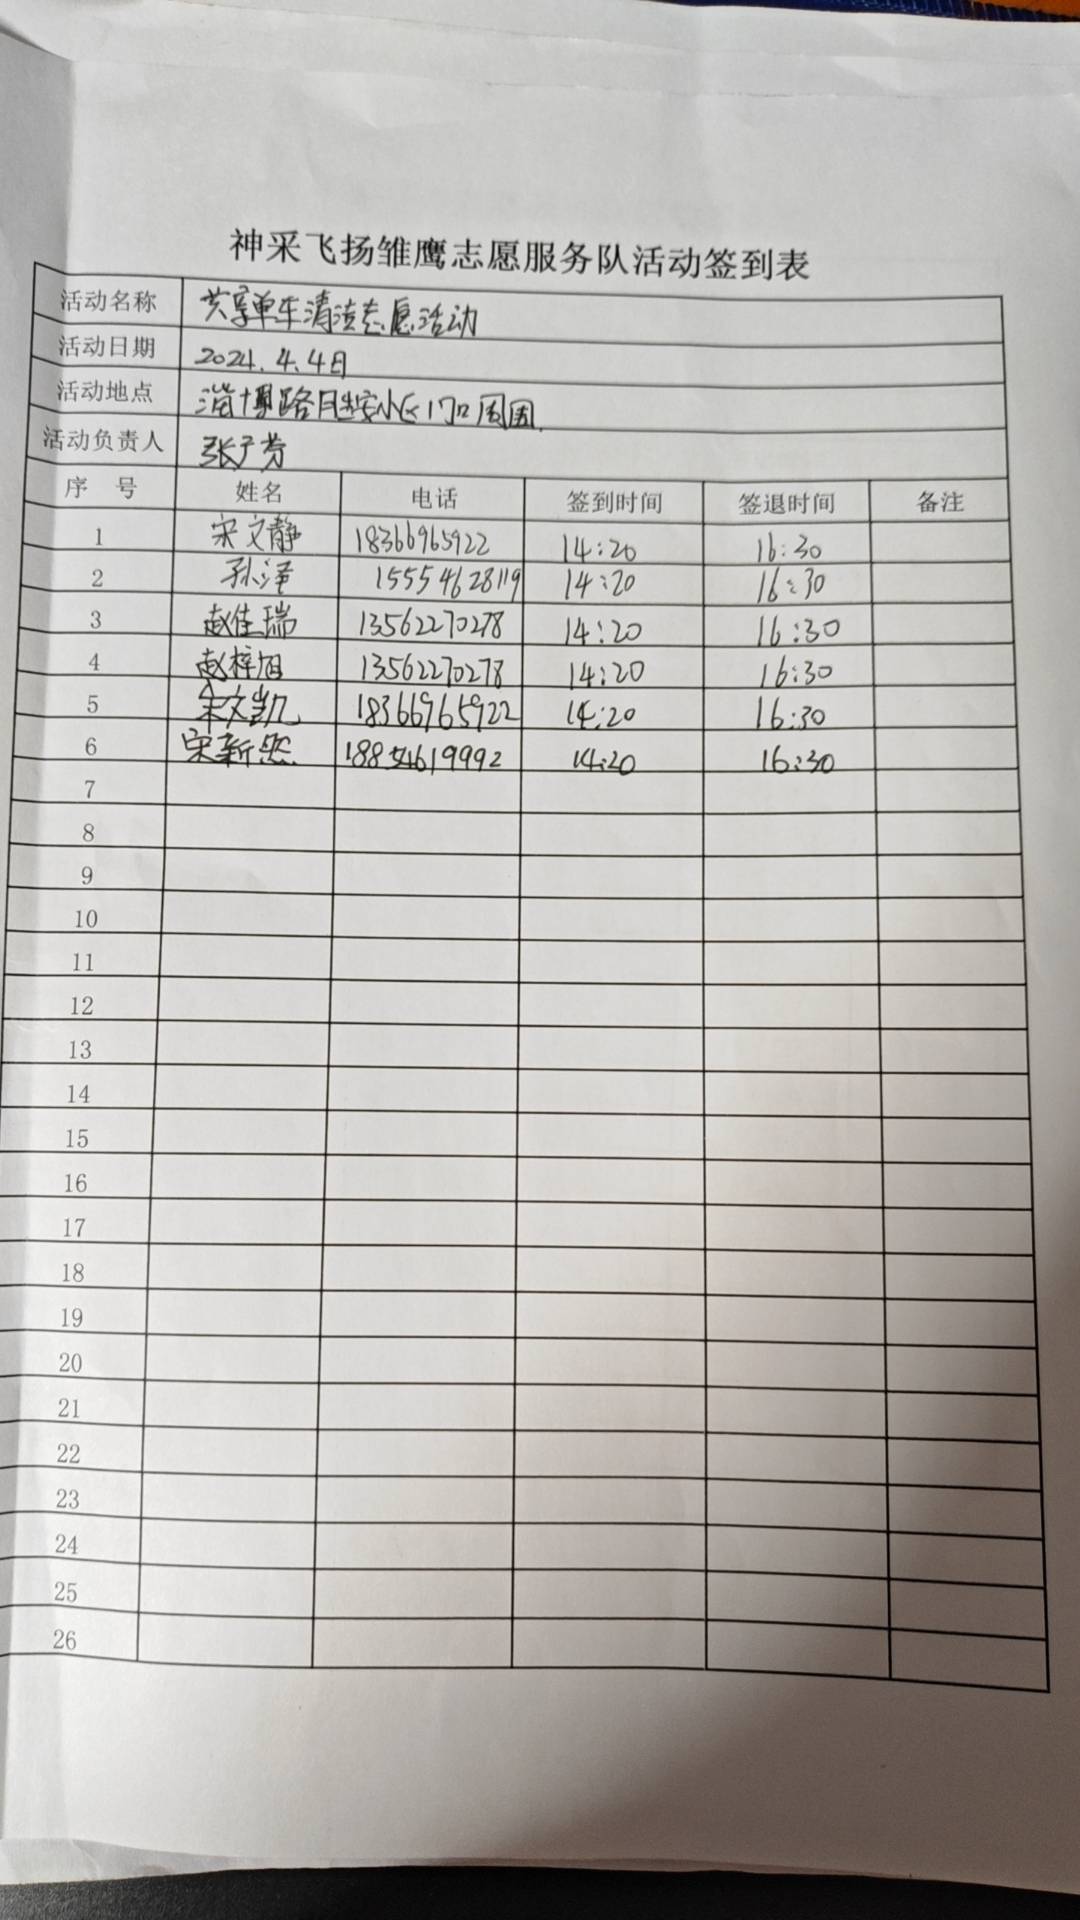 神采飞扬雏鹰志愿服务队活动签到表
活动名称 共享单车清洁志愿活动
活动日期 2024.4.4日
活动地点 淄博路 小区门口周围
活动负责人 张广芬
序号 姓名 电话 签到时间 签退时间 备注
1 宋文静 18366965922 14:20 16:30
2 孙泽 15554628119 14:20 16:30
3 赵佳瑞 13562270278 14:20 16:30
4 赵梓旭 13562270278 14:20 16:30
5 宋文凯 18366965922 14:20 16:30
6 宋新然 18854619992 14:20 16:30
7
8
9
10
11
12
13
14
15
16
17
18
19
20
21
22
23
24
25
26